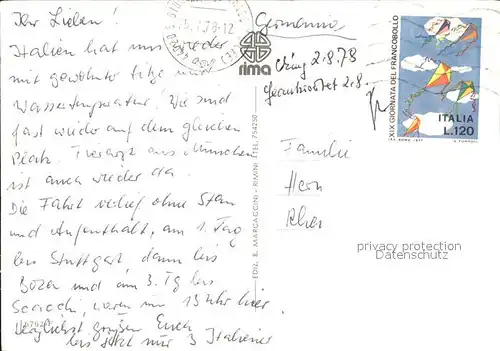 Ihr Lieben!
Italien hat uns wieder
mit gewohnter Hitze und
Wassertemperatur! Wir sind
fast wieder auf dem gleichen
Platz. Tierarzt aus München
ist auch wieder da.
Die Fahrt verlief ohne Stau
und Aufenthalt, am 1. Tag
bis Stuttgart dann bis
Bozen und am 3. Tg bis
waren um 13 Uhr hier.
Herzlichst grüßen Euch
bis jetzt nur 3 Italiener
EDIZ. E. MARCACCINI - RIMINI - TEL. 754250
rima
Germania
2.8.78
Geantwortet 2.8.
XIX GIORNATA DEL FRANCOBOLLO
ITALIA
L.120
Familie
Herm
privacy protection
Datenschutz